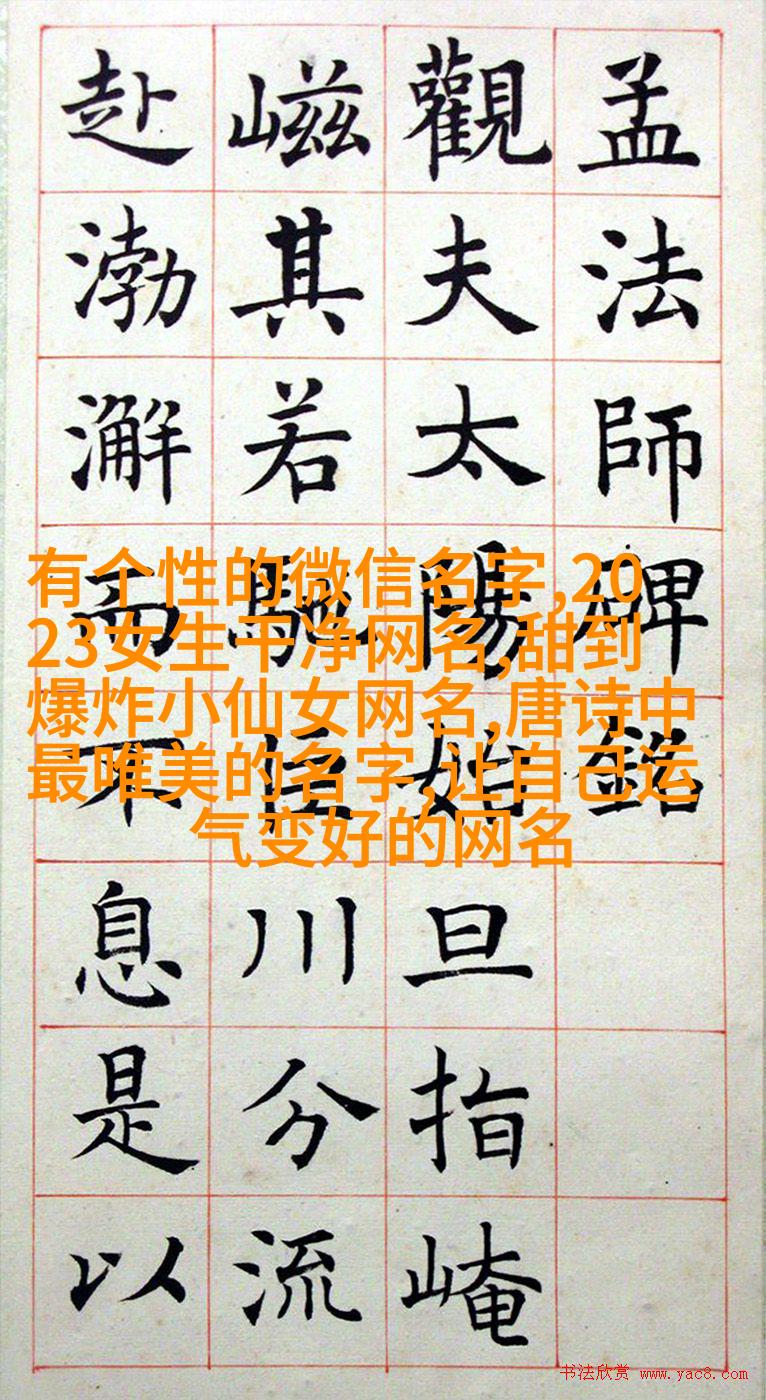 孟法師碑銘
觀夫太陽始旦指崦
嵫其若馳川分流
赴渤澥而不息是以
有个性的微信名字,20
23女生干净网名,甜到
爆炸小仙女网名,唐诗中
最唯美的名字,让自己运
气变好的网名
书法欣赏 www.yac8.com